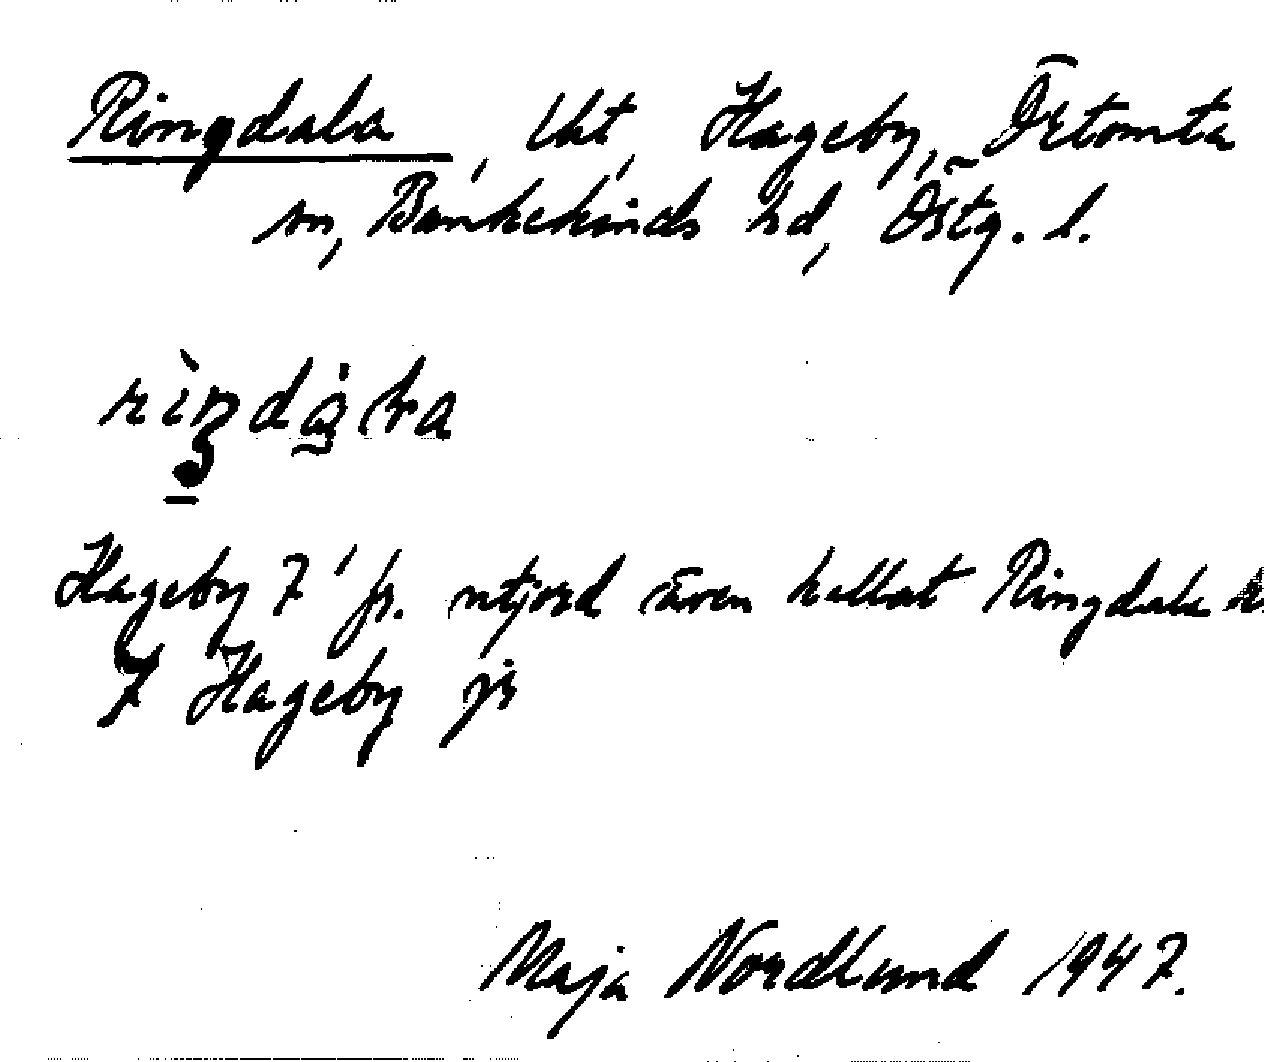 Ringdala, lht, Hageby, Örtomta
sn, Bankekinds hd, Östg. l.
Hageby 7' fr. utjord även kallat Ringdala
7 Hageby js
Maja Nordlund 1947.